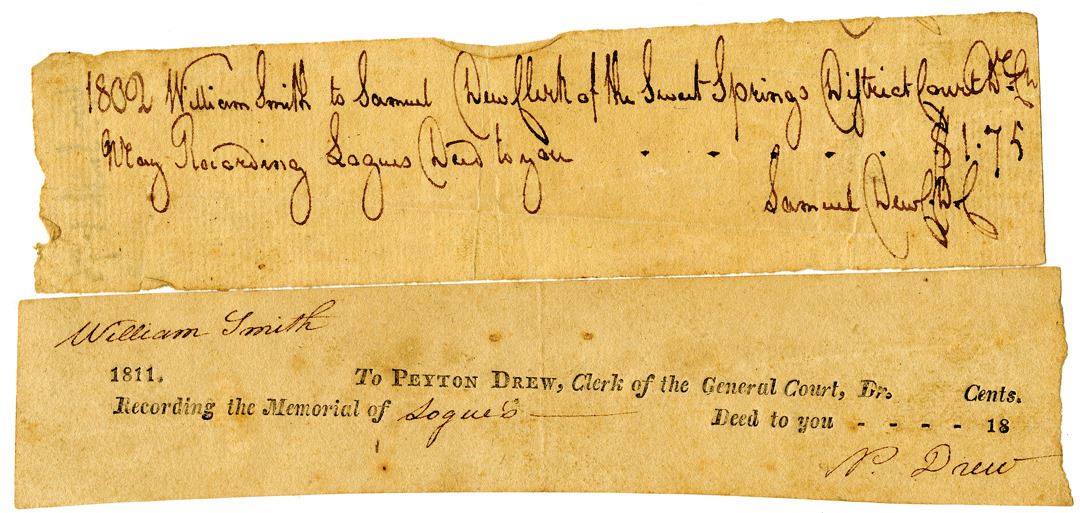 1802 William Smith to Samuel Dew Clerk of the Sweet Springs District Court Dr.
May Recording Logues Deed to you - - - - $1.75
Samuel Dew
William Smith
1811. To PEYTON DREW, Clerk of the General Court, Dr. Cents.
Recording the Memorial of Logue's Deed to you - - - - 18
P. Drew